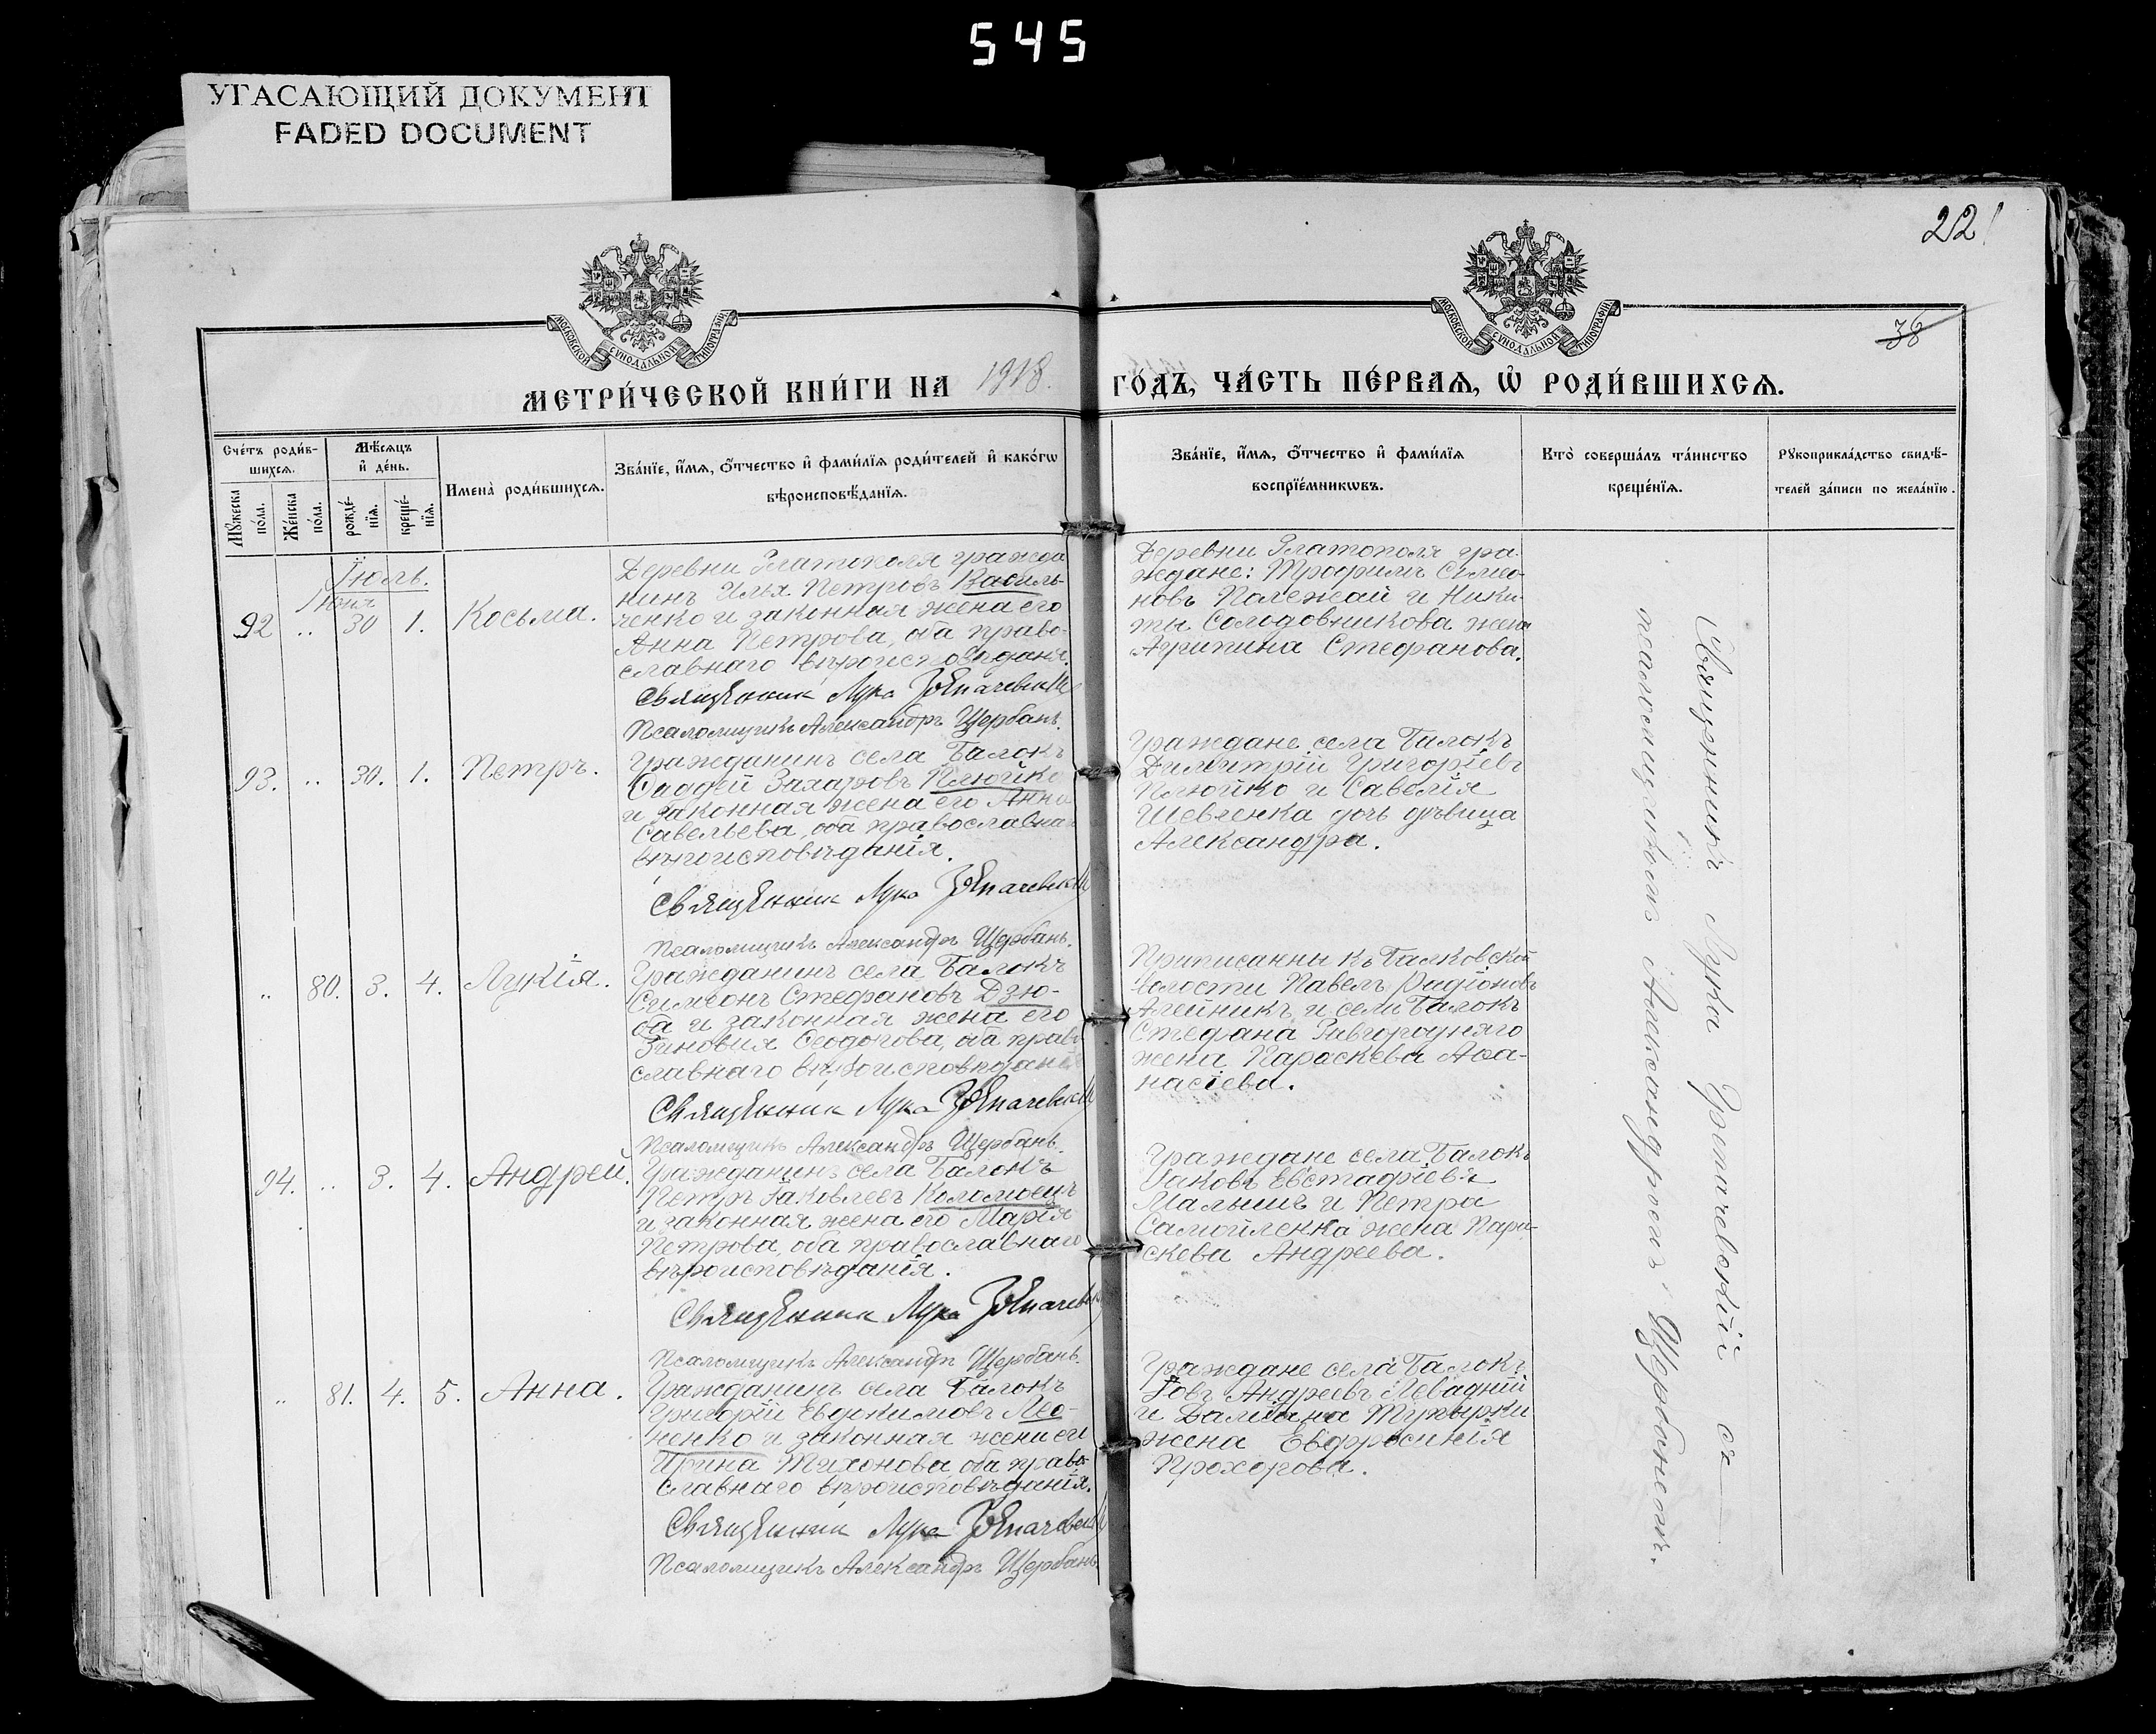 545
УГАСАЮЩИЙ ДОКУМЕНТ
FADED DOCUMENT
221
38
МОСКОВСКОЙ СѴНОДАЛЬНОЙ ТИПОГРАФІИ
МОСКОВСКОЙ СѴНОДАЛЬНОЙ ТИПОГРАФІИ
МЕТРИ́ЧЕСКОЙ КНИ́ГИ НА 1918. ГО́ДЪ, ЧА́СТЬ ПЕ́РВАѦ, Ѡ҆ РОДИ́ВШИХСѦ.
Сче́тъ роди́в-
шихсѧ.
Мꙋ́жеска по́ла.
Же́нска по́ла.
Мѣ́сѧцъ
и҆ де́нь.
рожде́-
нїѧ.
креще́-
нїѧ.
Имена̀ роди́вшихсѧ.
Зва́нїе, и҆́мѧ, ѻ҆́тчество и҆ фами́лїѧ роди́телей и҆ како́гѡ
вѣроисповѣ́данїѧ.
Зва́нїе, и҆́мѧ, ѻ҆́тчество и҆ фами́лїѧ
воспрїе́мникѡвъ.
Кто̀ соверша́лъ та́инство
креще́нїѧ.
Рꙋкоприкла́дство свидѣ́-
телей за́писи по жела́нїю.
Іюль.
Іюня
92 .. 30 1. Косьма.
Деревни Златополя гражда
нинъ Илья Петровъ Василь-
ченко и законная жена его
Анна Петрова, оба право-
славнаго вѣроисповѣданія.
Священник Лука
Псаломщикъ Александръ Щербань.
Деревни Златополя гра-
ждане: Трофимъ Симео-
новъ Полежай и Ники-
ты Солодовникова жена
Агрипина Стефанова.
93. .. 30. 1. Петръ.
Гражданинъ села Балокъ
Фаддей Захаровъ Плюйко
и законная жена его Анна
Савельева, оба православнаго
вѣроисповѣданія.
Священник Лука
Псаломщикъ Александръ Щербань.
Граждане села Балокъ
Димитрій Григоріевъ
Плюйко и Савелія
Шевченка дочь дѣвица
Александра.
.. 80. 3. 4. Лукія.
Гражданинъ села Балокъ
Симеонъ Стефановъ Дзю-
ба и законная жена его
Зиновия Феодотова, оба право
славнаго вѣроисповѣданія
Священник Лука
Псаломщикъ Александръ Щербань.
Приписанны къ Балковской
волости Павелъ Родіоновъ
Алейникъ и села Балокъ
Стефана Завгородняго
жена Параскева Афа-
насіева.
94. .. 3. 4. Андрей.
Гражданинъ села Балокъ
Петръ Яковлевъ Коломоецъ
и законная жена его Марія
Петрова, оба православнаго
вѣроисповѣданія.
Священник Лука
Псаломщикъ Александръ Щербань.
Граждане села Балокъ
Іаковъ Евстафіевъ
Малышъ и Петра
Самойленка жена Пара-
скева Андреева.
.. 81. 4. 5. Анна.
Гражданинъ села Балокъ
Григорій Евдокимовъ Лео-
ненко и законная жена его
Ирина Тихонова, оба право-
славнаго вѣроисповѣданія.
Священник Лука
Псаломщикъ Александръ Щербань
Граждане села Балокъ
Іовъ Андреевъ Левадній
и Даміана
жена Евфросинія
Прохорова.
Священникъ Лука съ
псаломщикомъ Александромъ Щербанемъ.